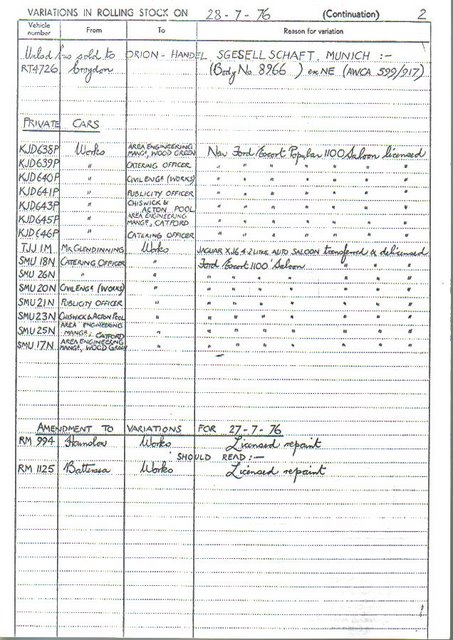 VARIATIONS IN ROLLING STOCK ON 28-7-76 (Continuation) 2
Vehicle number From To Reason for variation
sold to ORION-HANDELSGESELLSCHAFT, MUNICH :-
RT4726 Croydon (Body No 8966 ) ex NE (AWCA 599/917)
PRIVATE CARS
KJD638P Works AREA ENGINEERING MANGR, WOOD GREEN New Ford/Escort Popular 1100 Saloon licensed
KJD639P " CATERING OFFICER " " " " " " "
KJD640P " CIVIL ENGR (WORKS) " " " " " " "
KJD641P " PUBLICITY OFFICER " " " " " " "
KJD643P " CHISWICK & ACTON POOL " " " " " " "
KJD645P " AREA ENGINEERING MANGR, CATFORD " " " " " " "
KJD646P " CATERING OFFICER " " " " " " "
TJJ 1M MR. GLENDINNING Works JAGUAR XJ6 4.2 LITRE AUTO SALOON transferred & delicensed
SMU 18N CATERING OFFICER " Ford Escort 1100 Saloon " " "
SMU 26N " " " " " " " " "
SMU 20N CIVIL ENGR (WORKS) " " " " " " " "
SMU 21N PUBLICITY OFFICER " " " " " " " "
SMU 23N CHISWICK & ACTON POOL " " " " " " " "
SMU 25N AREA ENGINEERING MANGR, CATFORD " " " " " " " "
SMU 17N AREA ENGINEERING MANGR, WOOD GREEN " " " " " " " "
AMENDMENT TO VARIATIONS FOR 27-7-76
RM 994 Hanslow Works Licensed repaint
'SHOULD READ :-
RM 1125 Battersea Works Licensed repaint